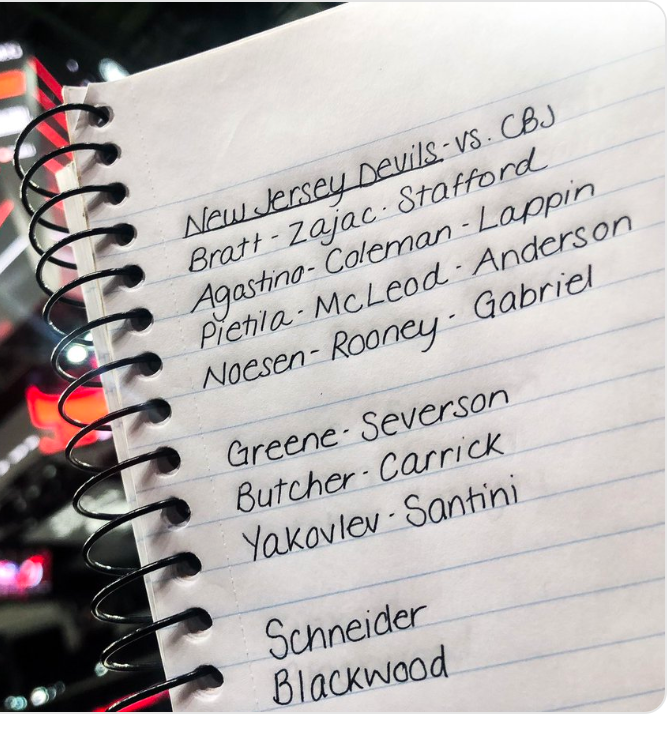 New Jersey Devils - vs. CBJ
Bratt - Zajac - Stafford
Agostino - Coleman - Lappin
Pietila - McLeod - Anderson
Noesen - Rooney - Gabriel
Greene - Severson
Butcher - Carrick
Yakovlev - Santini
Schneider
Blackwood